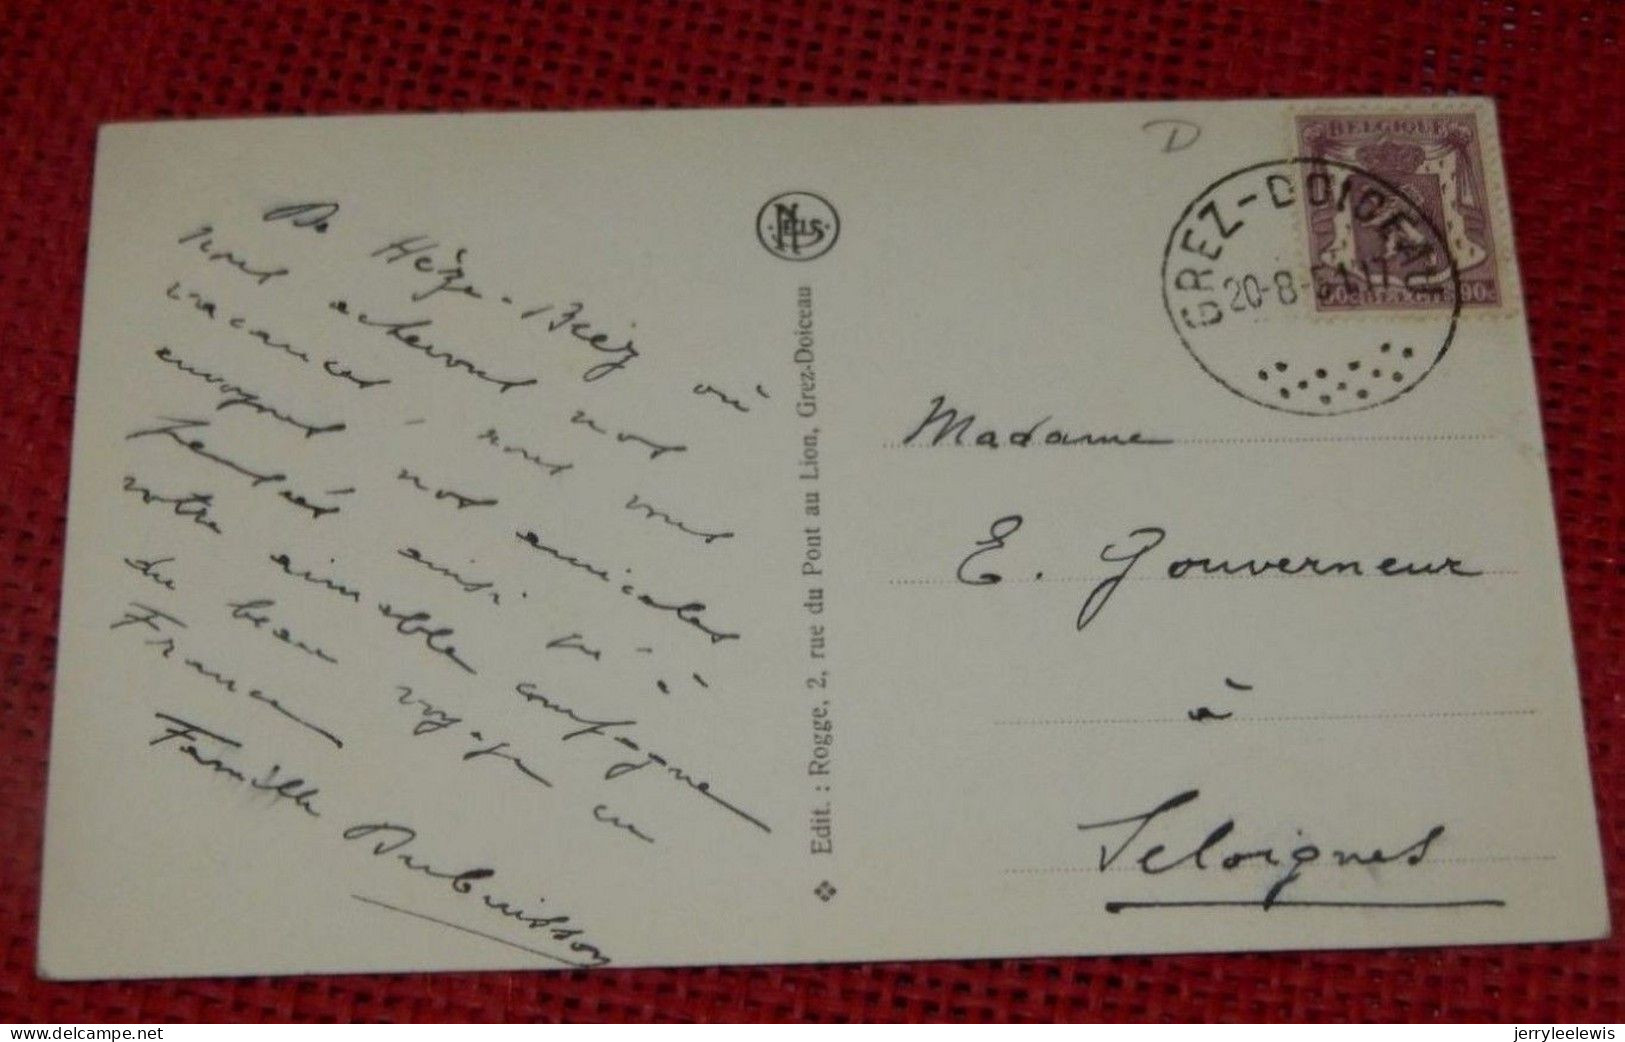 De Hèze-Biez où
nous achevons nos
vacances, nous vous
envoyons nos amicales
pensées ainsi qu'à
votre aimable compagne
du beau voyage en
France
Famille Dubuisson
NELS
Edit. : Rogge, 2, rue du Pont au Lion, Grez-Doiceau
D
BELGIQUE
90c BELGIE 90c
GREZ-DOICEAU
20-8-51 17
Madame
E. Gouverneur
à
Seloignes
www.delcampe.net
jerryleelewis